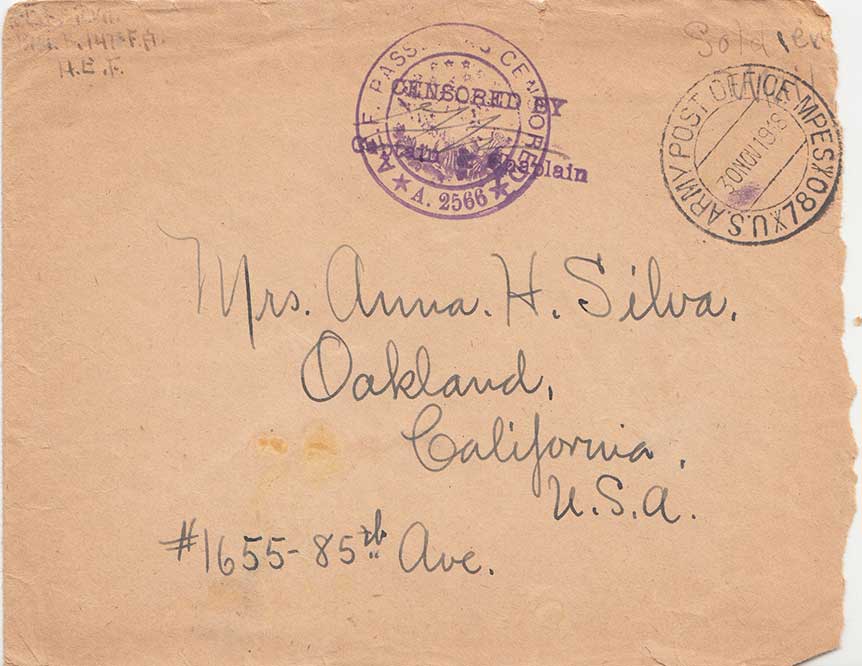 147 F.A.
A.E.F.
Soldier
A.E.F. PASSED AS CENSORED
CENSORED BY
Captain & Chaplain
★ A. 2566 ★
U.S. ARMY POST OFFICE MPES
30 NOV 1918
780
Mrs. Anna. H. Silva.
Oakland,
California,
U.S.A.
#1655-85th Ave.